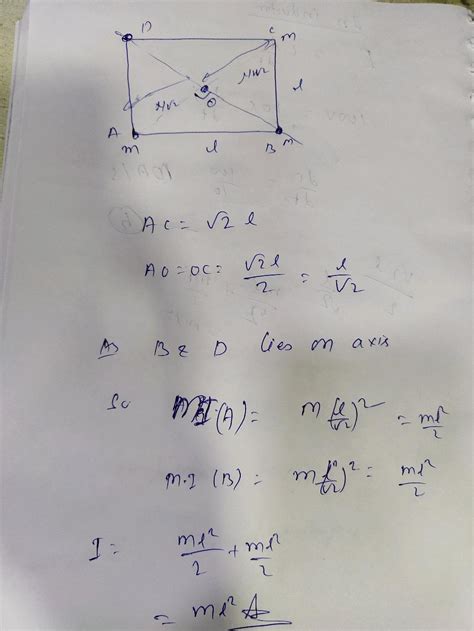 D C M
l/√2
l/√2 O l
A
M l B M
AC = √2 l
AO = OC = √2l/2 = l/√2
As B & D lies on axis
So MI (A) = m(l/√2)² = ml²/2
M.I (B) = m(l/√2)² = ml²/2
I = ml²/2 + ml²/2
= ml² A